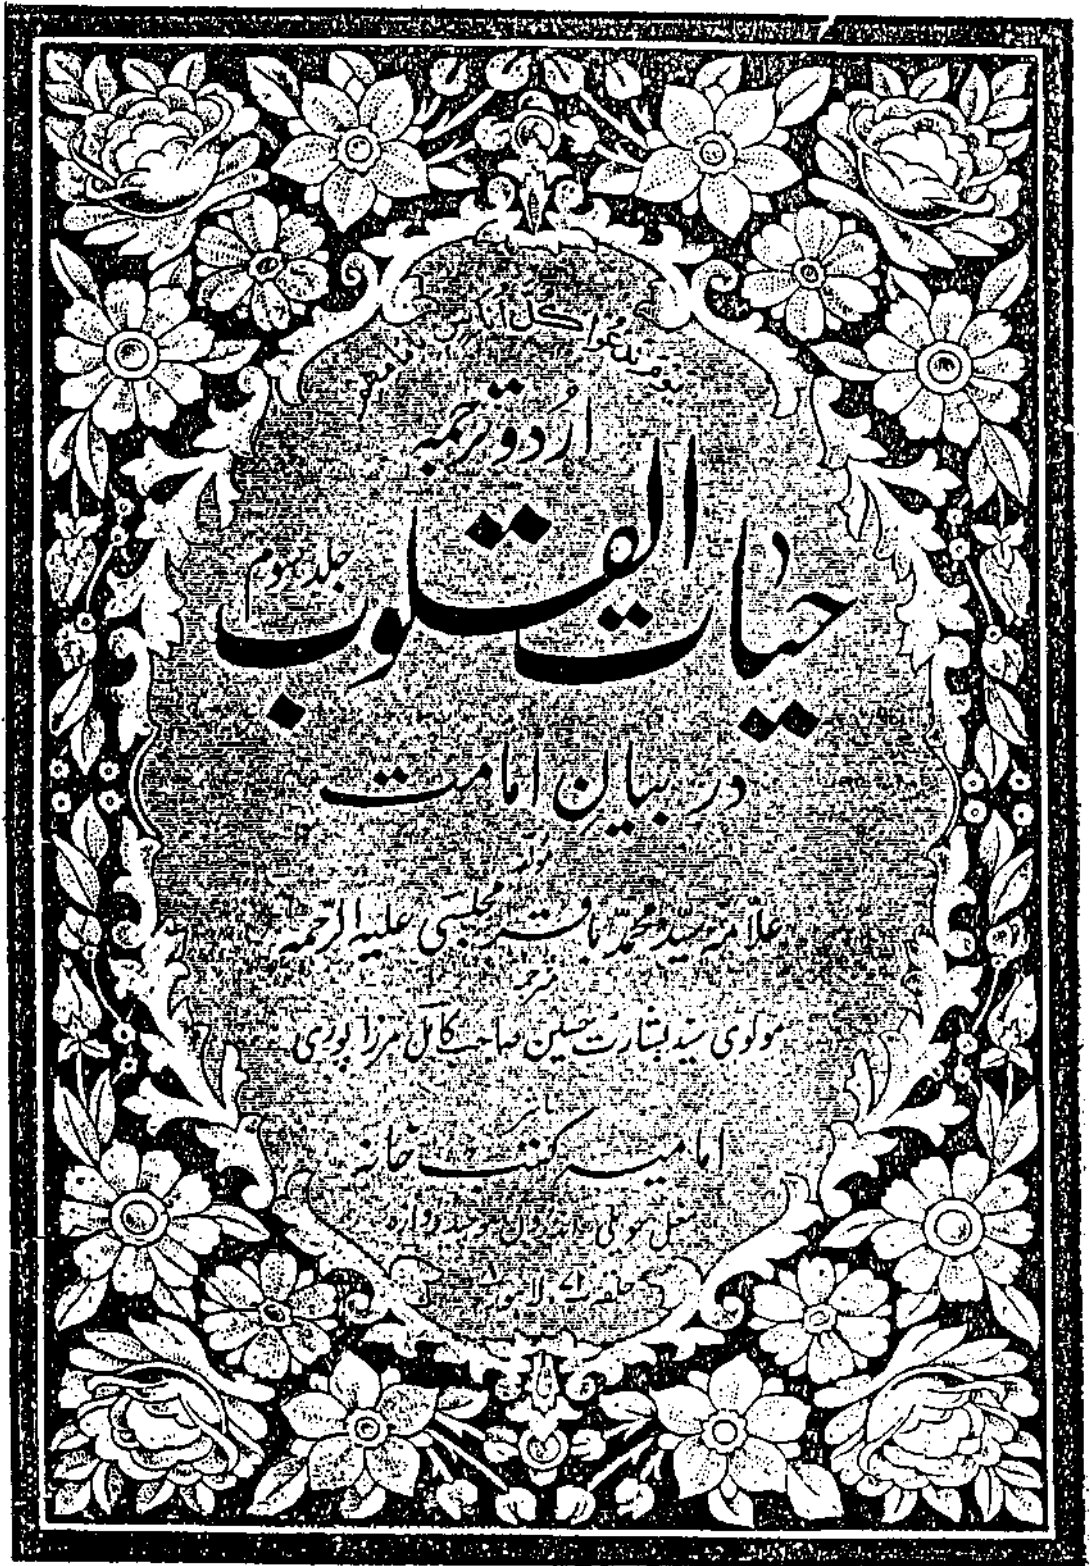 یوم ندعوا کل اناس بامامھم
اُردو ترجمہ
حیات القلوب
جلد سوم
در بیانِ امامت
مؤلفہ
علامہ سید محمد باقر مجلسی علیہ الرحمہ
مترجمہ
مولوی سید بشارت حسین صاحب کامل مرزا پوری
ناشر
امامیہ کتب خانہ
مغل حویلی اندرون موچی دروازہ
حلقہ ۱ے لاہور ۸